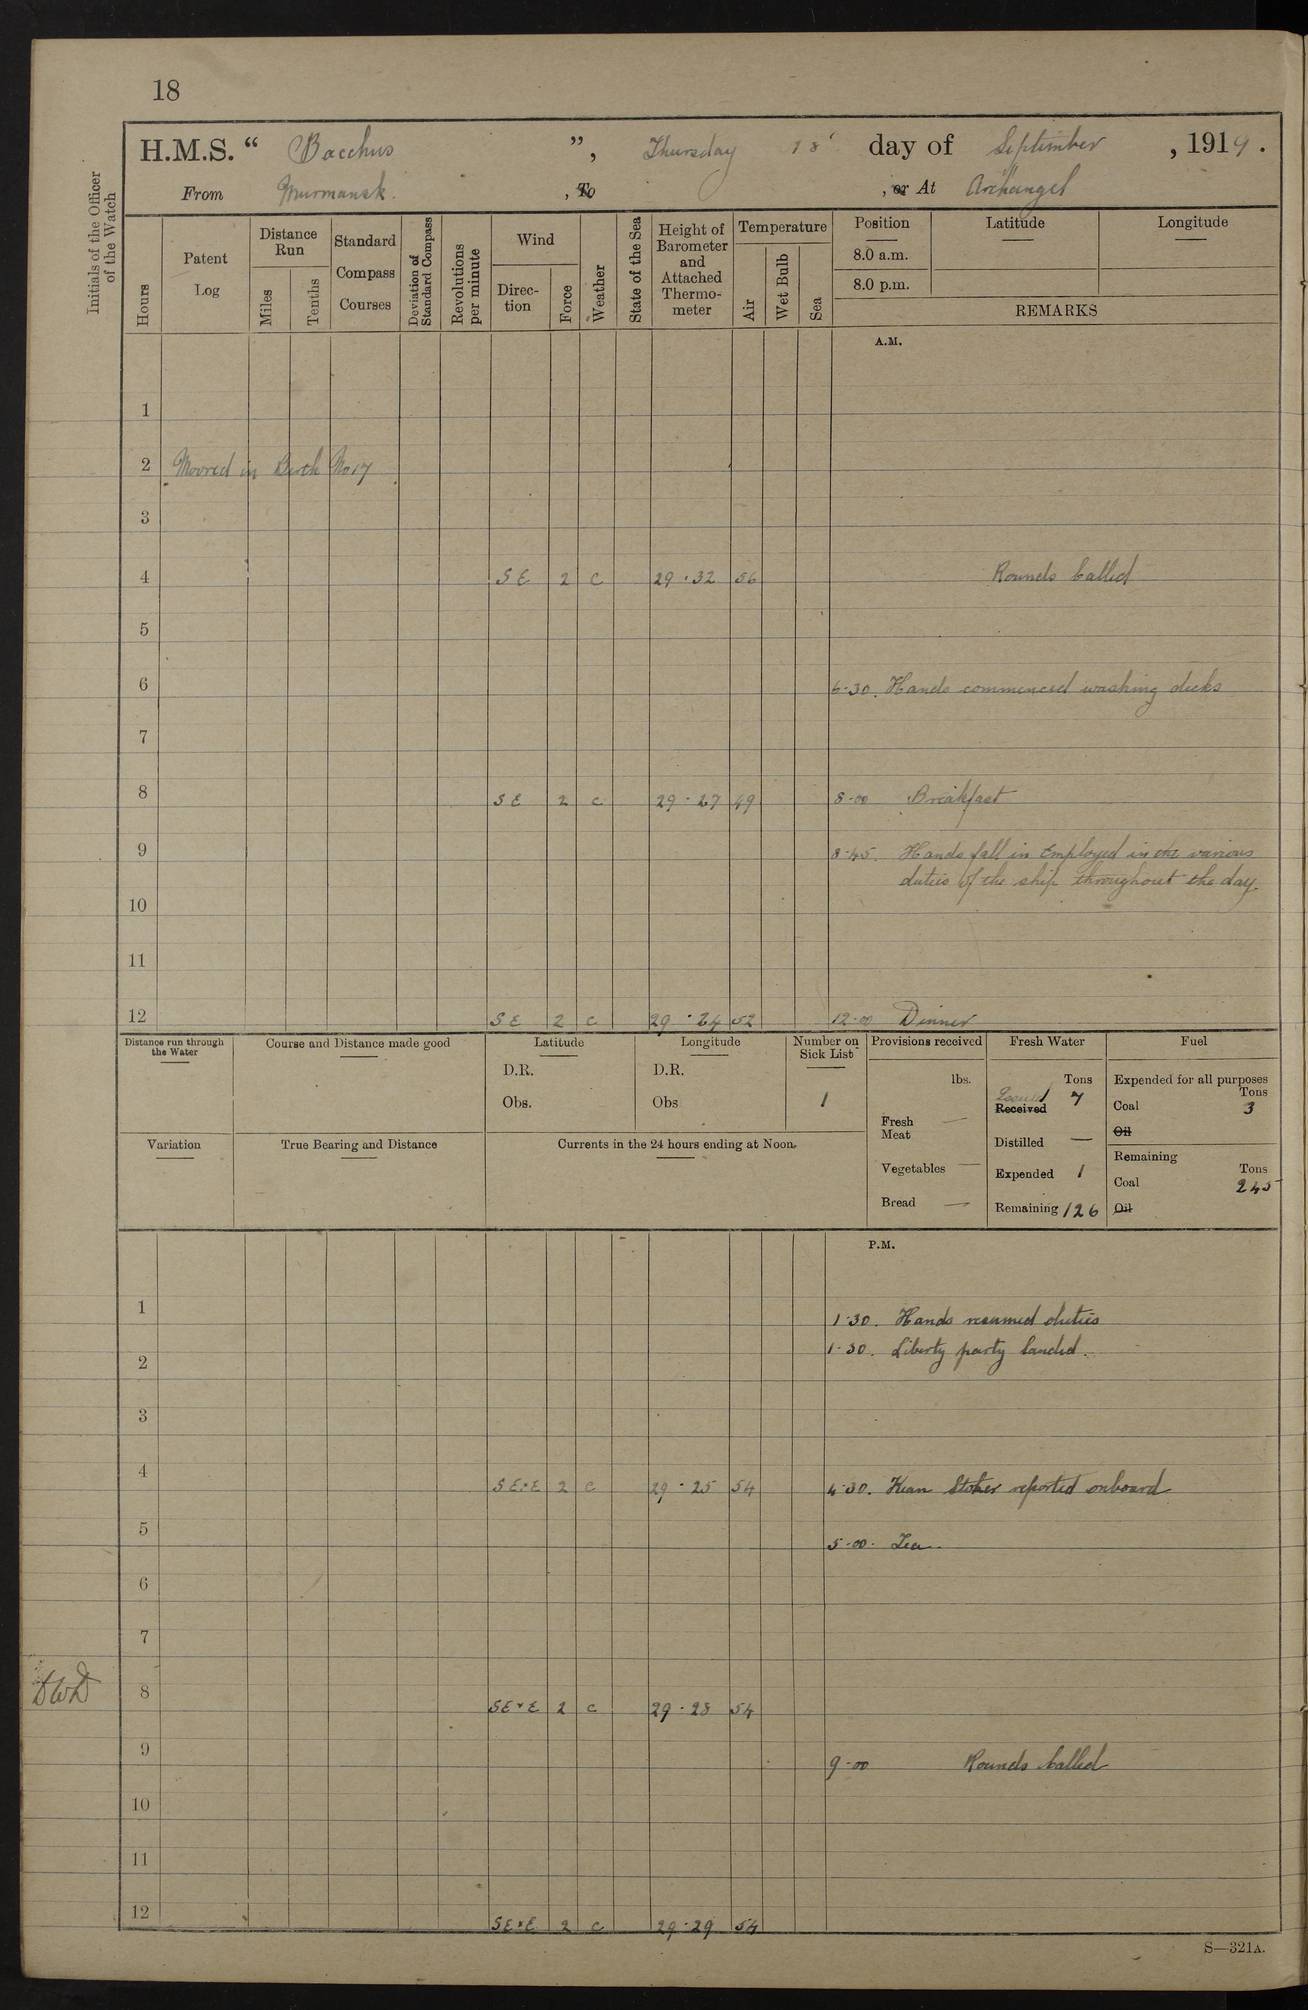 18
H.M.S. “ Bacchus ”, Thursday 18 day of September, 1919.
From Murmansk. , To , or At Archangel
Initials of the Officer of the Watch
Hours
Patent Log
Distance Run
Miles
Tenths
Standard Compass Courses
Deviation of Standard Compass
Revolutions per minute
Wind
Direction
Force
Weather
State of the Sea
Height of Barometer and Attached Thermometer
Temperature
Air
Wet Bulb
Sea
Position
8.0 a.m.
8.0 p.m.
Latitude
Longitude
REMARKS
A.M.
1
2 Moored in Berth No 17
3
4 SE 2 c 29.32 56 Rounds Called
5
6 6-30. Hands commenced washing decks
7
8 SE 2 c 29.27 49 8-00 Breakfast
9 8-45. Hands fall in Employed in the various
duties of the ship throughout the day.
10
11
12 SE 2 c 29.24 52 12-00 Dinner
Distance run through the Water
Course and Distance made good
Latitude
D.R.
Obs.
Longitude
D.R.
Obs
Number on Sick List
1
Variation
True Bearing and Distance
Currents in the 24 hours ending at Noon.
Provisions received
lbs.
Fresh Meat —
Vegetables —
Bread —
Fresh Water
Tons
Received 7
Distilled —
Expended 1
Remaining 126
Fuel
Expended for all purposes
Tons
Coal 3
Oil
Remaining
Tons
Coal 245
Oil
P.M.
1 1-30. Hands resumed duties
1-30. Liberty party landed.
2
3
4 SE×E 2 c 29.25 54 4-30. Kean Stoker reported onboard
5 5-00. Tea.
6
7
DWD 8 SE×E 2 c 29.28 54
9 9-00 Rounds Called
10
11
12 SE×E 2 c 29.29 54
S—321A.